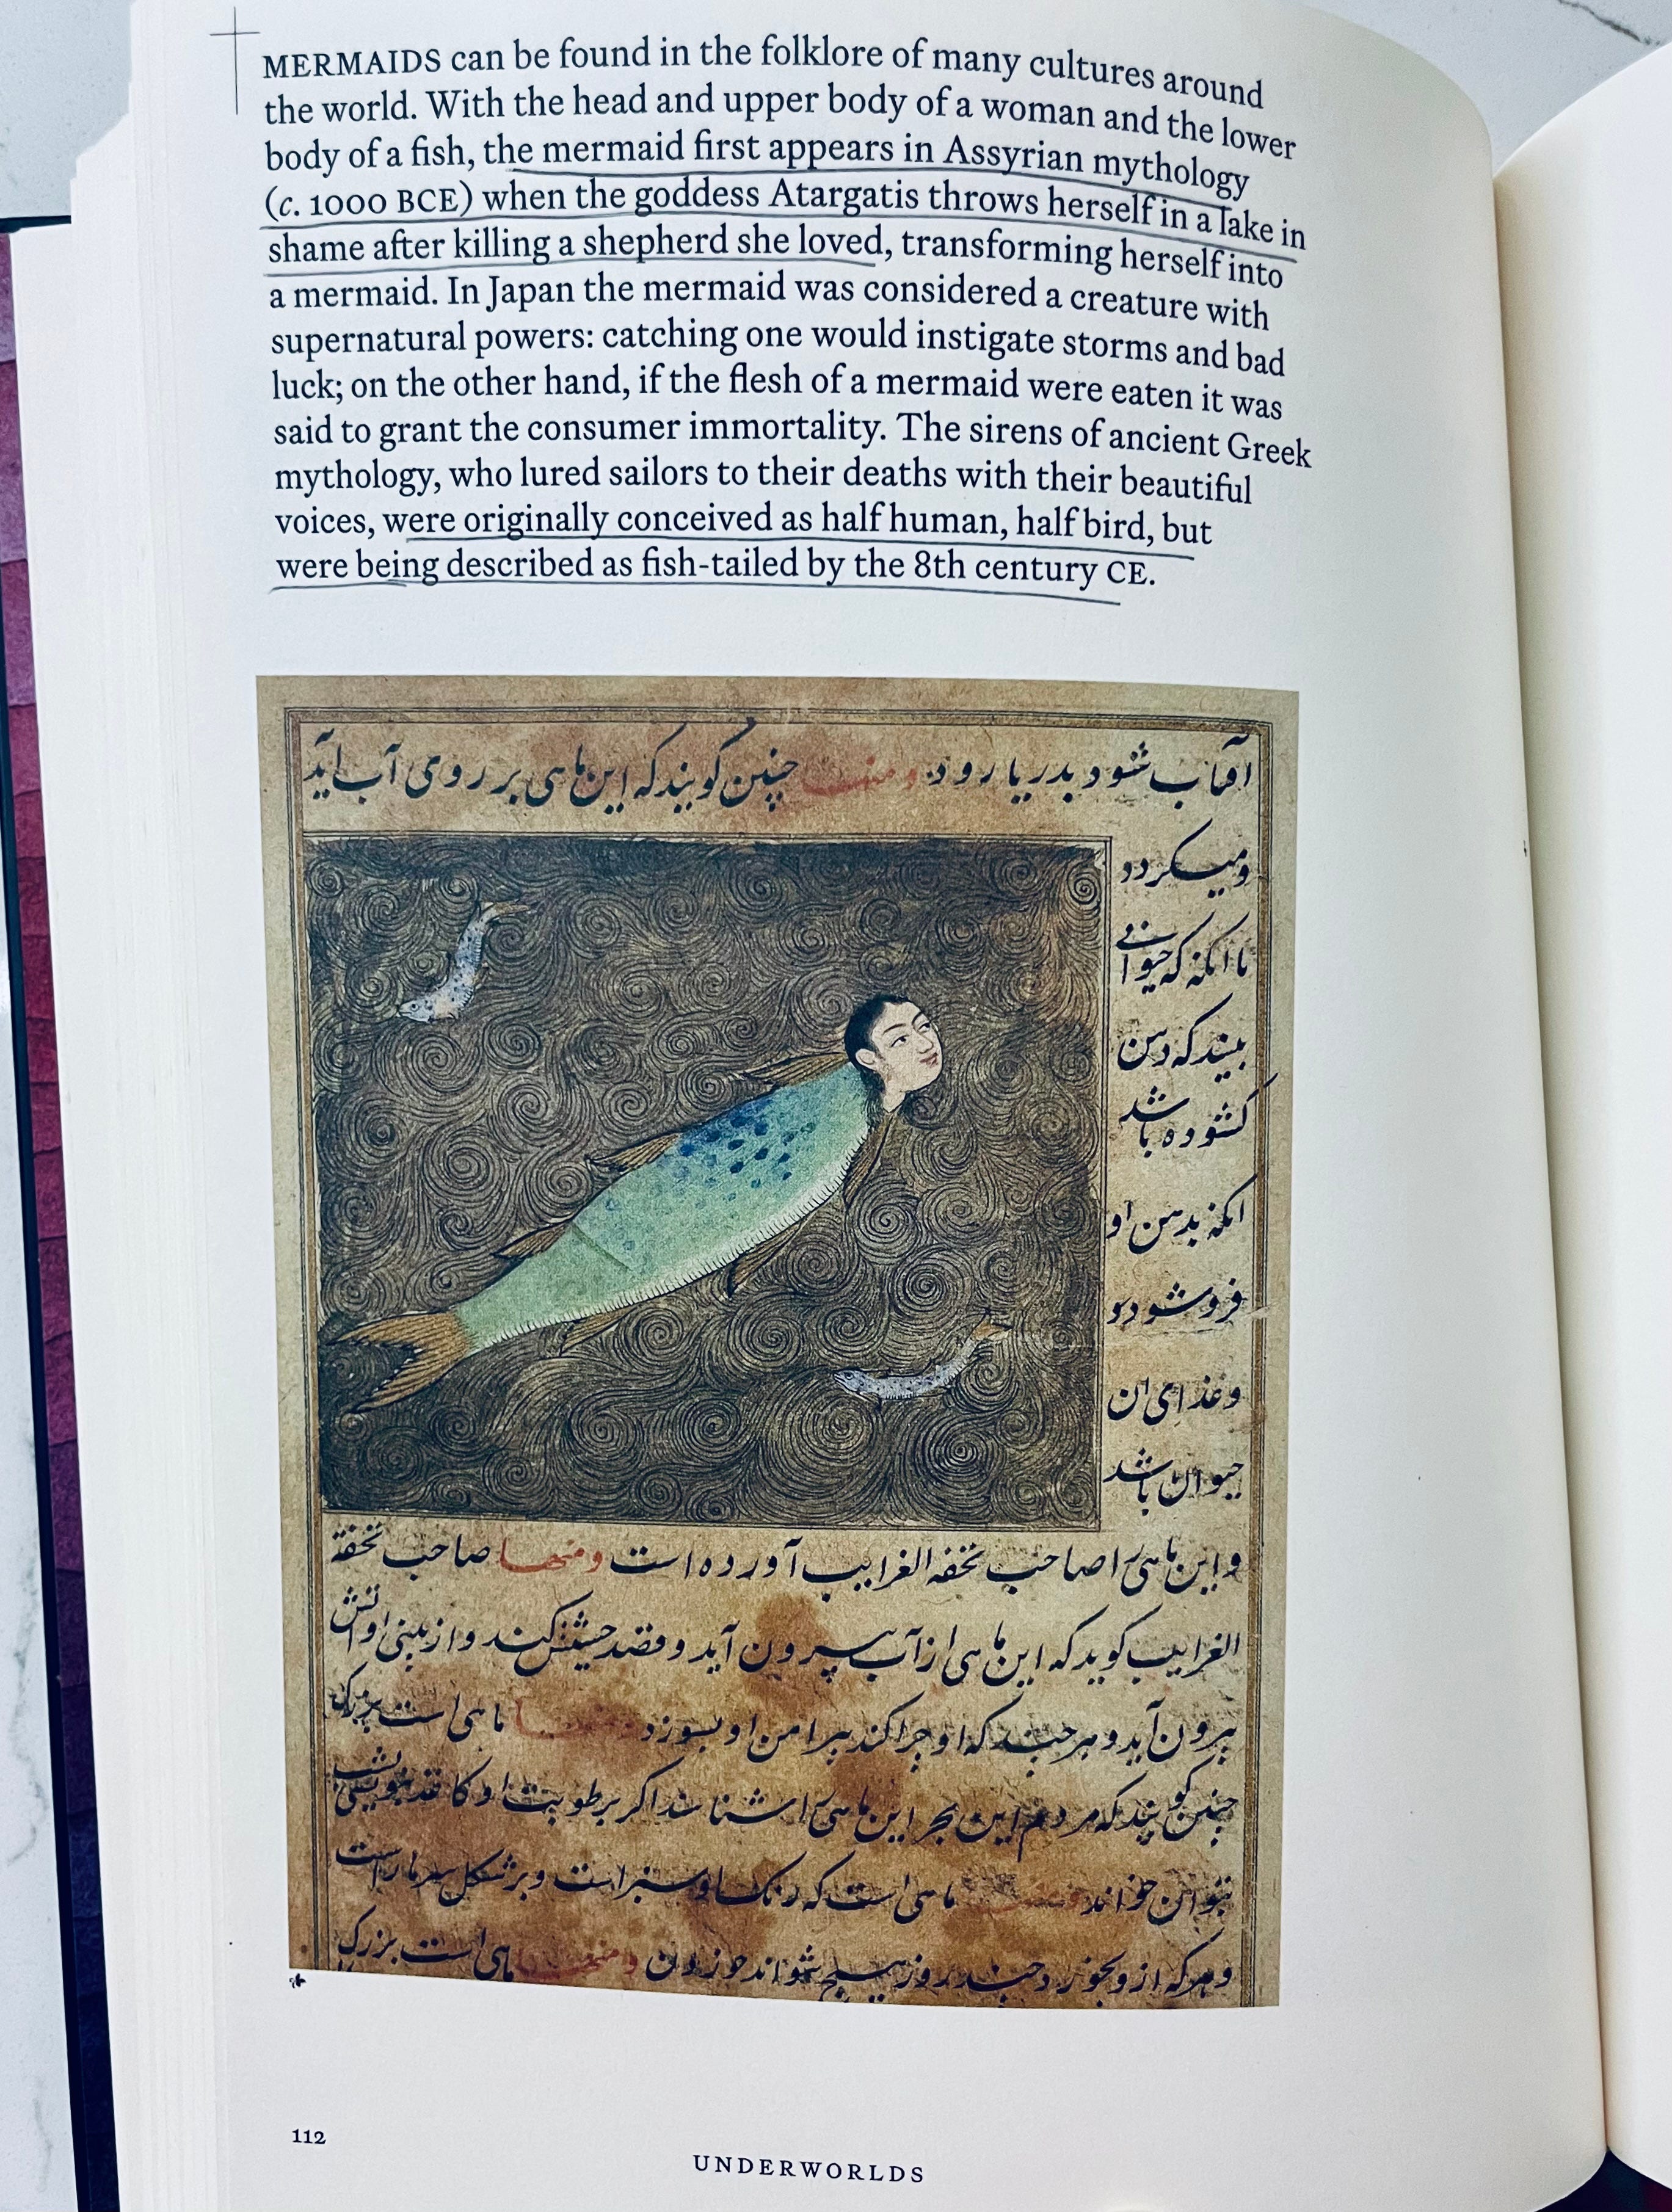 MERMAIDS can be found in the folklore of many cultures around
the world. With the head and upper body of a woman and the lower
body of a fish, the mermaid first appears in Assyrian mythology
(c. 1000 BCE) when the goddess Atargatis throws herself in a lake in
shame after killing a shepherd she loved, transforming herself into
a mermaid. In Japan the mermaid was considered a creature with
supernatural powers: catching one would instigate storms and bad
luck; on the other hand, if the flesh of a mermaid were eaten it was
said to grant the consumer immortality. The sirens of ancient Greek
mythology, who lured sailors to their deaths with their beautiful
voices, were originally conceived as half human, half bird, but
were being described as fish-tailed by the 8th century CE.
افتاب شود بدریا رود ومنها چنین کویند که این ماهی بر روی آب اید
ومیکردد
تا انکه که حیوانی
بیند که دهن
کشوده باشد
انکه بدهن او
فرو شود و
وغذای ان
حیوان باشد
واین ماهی را صاحب تحفه الغرایب آورده است ومنها صاحب تحفة
الغرایب کوید که این ماهی از آب بیرون آید وقصد کند واز بینی او اتش
بیرون آید وهر چند که او چرا کند پیرامن او بسوزد ماهی است بزرک
چنین کویند که مردم این بحر این ماهی را شناسند اکر برطوبت او کاغذ بنویسند بشب
بتوان خواند ماهی است که رنک او سبز است وبر شکل سر مار است
وهر که ازو بخورد چند روز هیچ نتواند خوردن ومنها ماهی است بزرک
112
UNDERWORLDS